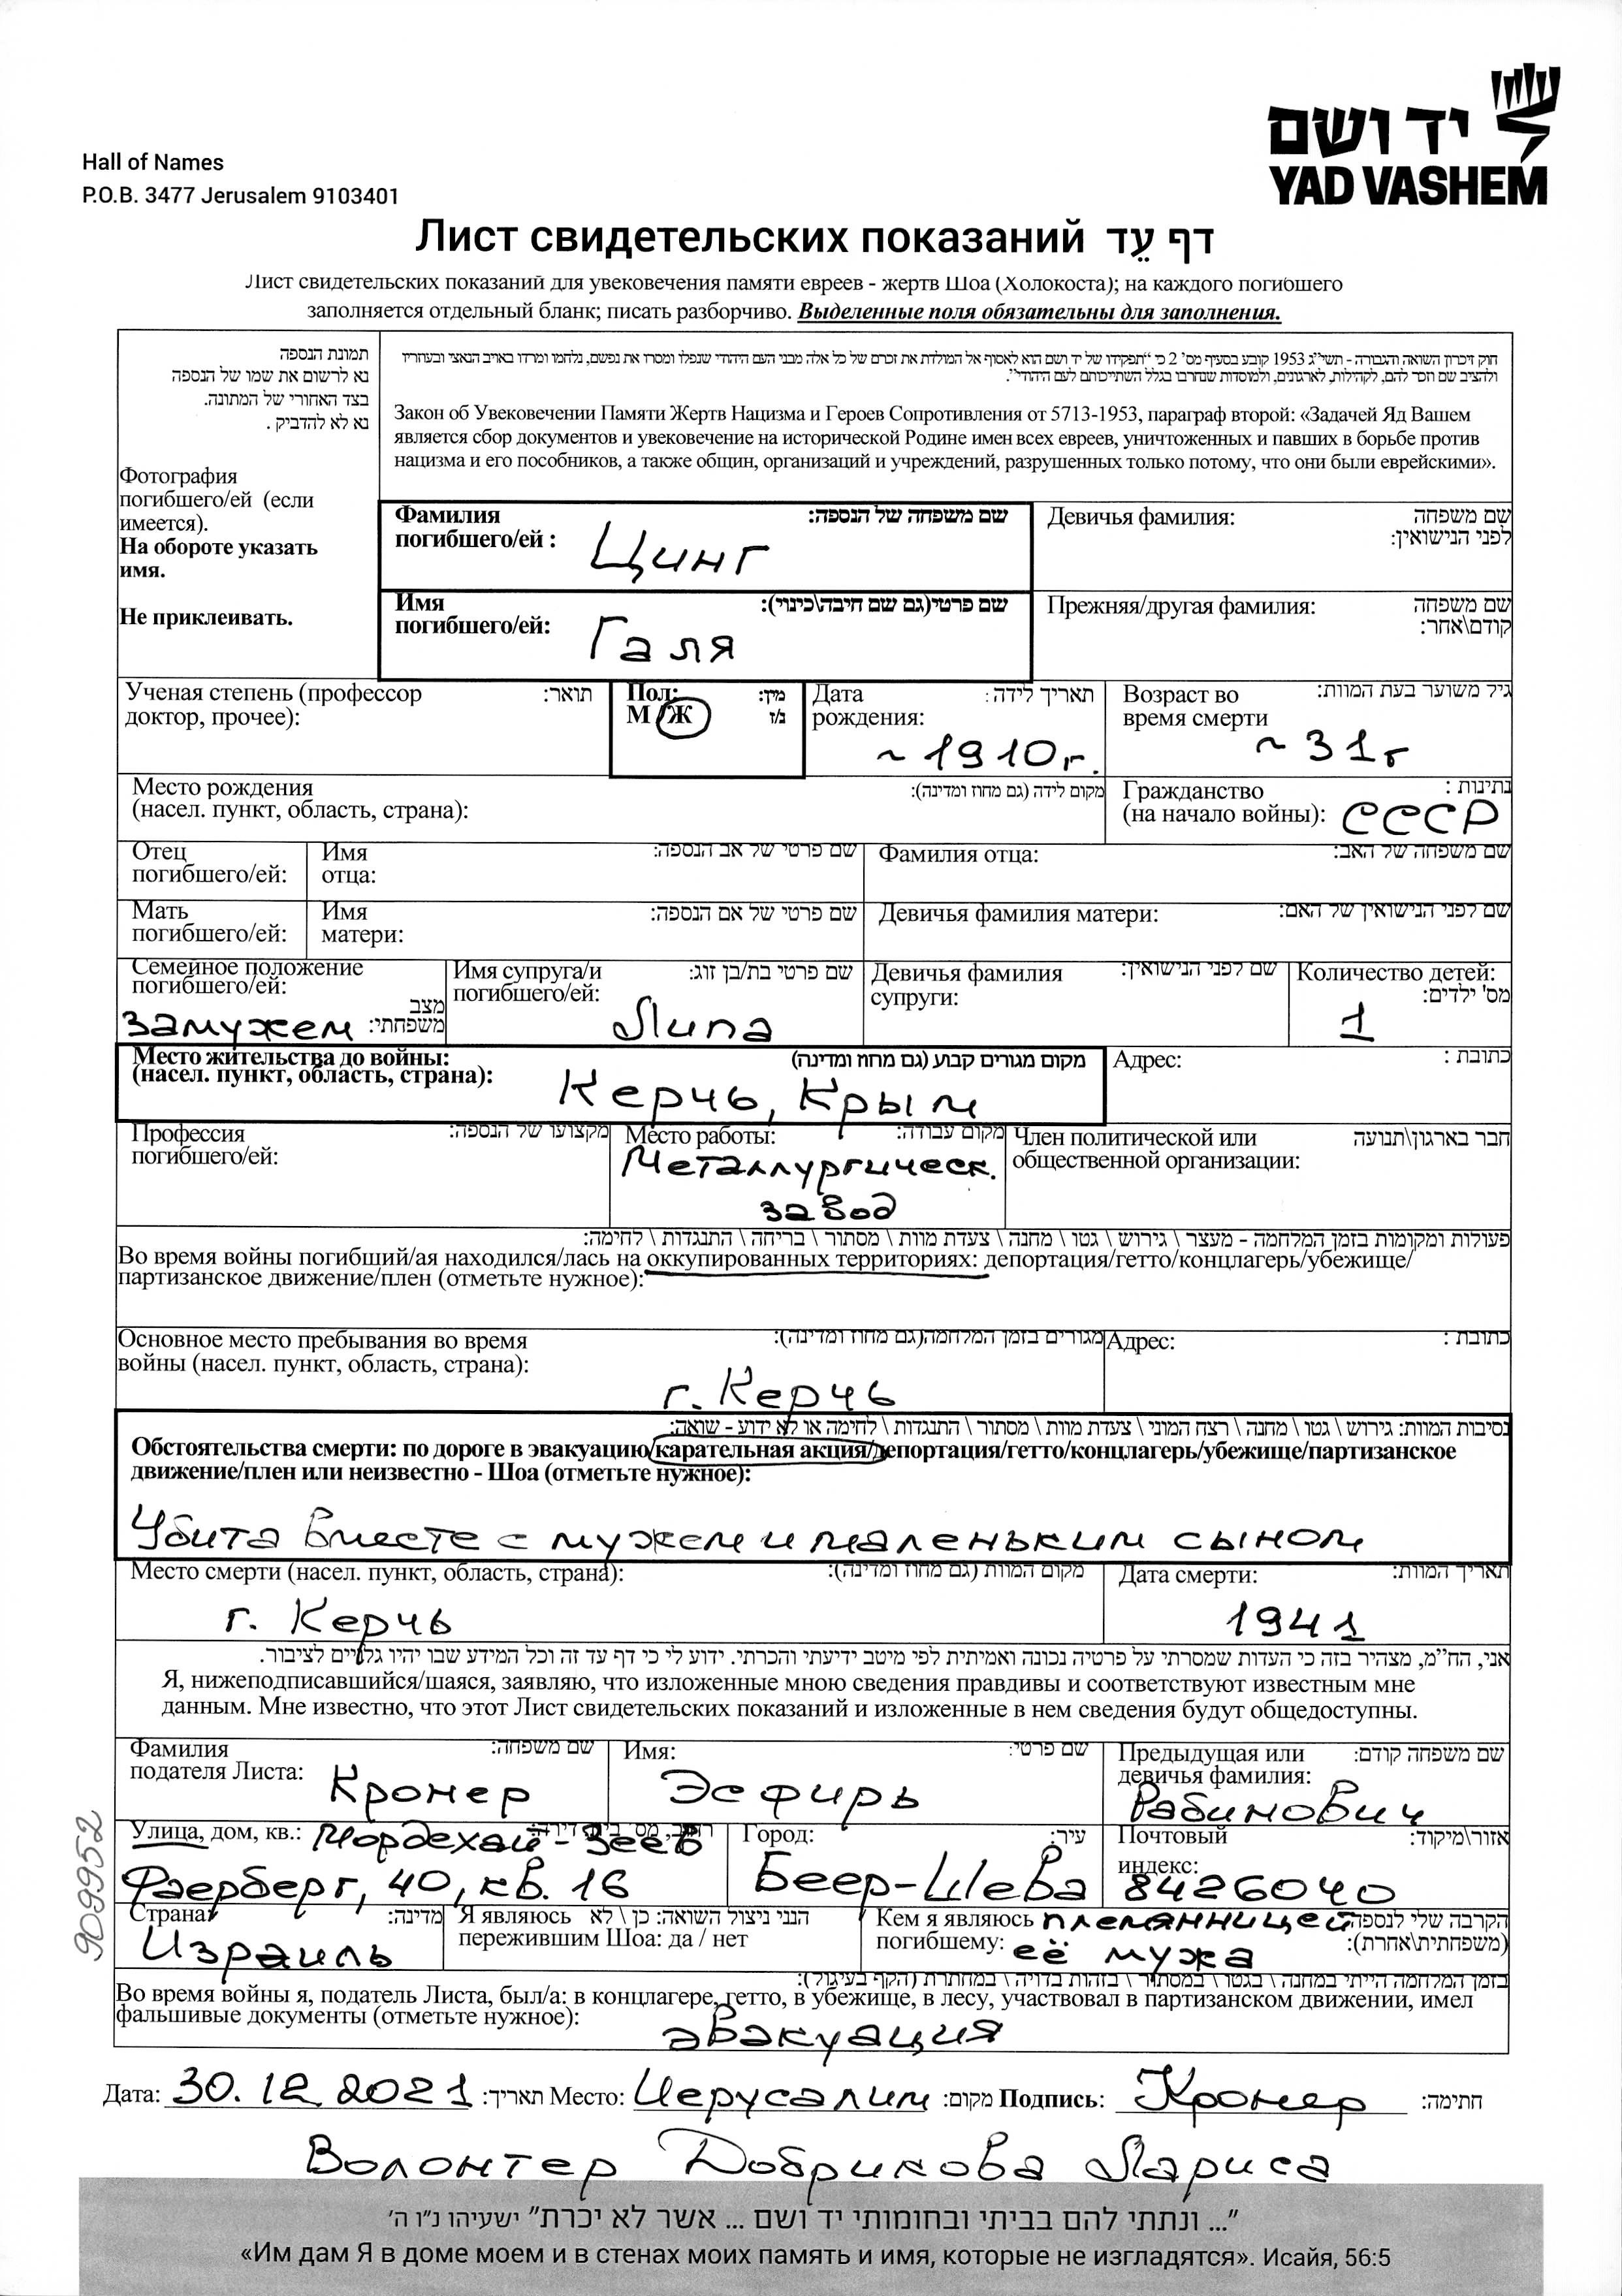 יד ושם
YAD VASHEM
Hall of Names
P.O.B. 3477 Jerusalem 9103401
Лист свидетельских показаний דף עֵד
Лист свидетельских показаний для увековечения памяти евреев - жертв Шоа (Холокоста); на каждого погибшего
заполняется отдельный бланк; писать разборчиво. Выделенные поля обязательны для заполнения.
תמונת הנספה
נא לרשום את שמו של הנספה
בצד האחורי של המתונה.
נא לא להדביק .
Фотография
погибшего/ей (если
имеется).
На обороте указать
имя.
Не приклеивать.
חוק זיכרון השואה והגבורה - תשי"ג 1953 קובע בסעיף מס' 2 כי "תפקידו של יד ושם הוא לאסוף אל המולדת את זכרם של כל אלה מבני העם היהודי שנפלו ומסרו את נפשם, נלחמו ומרדו באויב הנאצי ובעוזריו
ולהציב שם וזכר להם, לקהילות, לארגונים, ולמוסדות שנחרבו בגלל השתייכותם לעם היהודי".
Закон об Увековечении Памяти Жертв Нацизма и Героев Сопротивления от 5713-1953, параграф второй: «Задачей Яд Вашем
является сбор документов и увековечение на исторической Родине имен всех евреев, уничтоженных и павших в борьбе против
нацизма и его пособников, а также общин, организаций и учреждений, разрушенных только потому, что они были еврейскими».
Фамилия שם משפחה של הנספה:
погибшего/ей : Цинг
Девичья фамилия: שם משפחה
לפני הנישואין:
Имя שם פרטי(גם שם חיבה\כינוי):
погибшего/ей: Галя
Прежняя/другая фамилия: שם משפחה
קודם\אחר:
Ученая степень (профессор תואר:
доктор, прочее):
Пол: מין:
М /Ж ז/נ
Дата תאריך לידה :
рождения:
~ 1910г.
Возраст во גיל משוער בעת המוות:
время смерти
~ 31г
Место рождения מקום לידה (גם מחוז ומדינה):
(насел. пункт, область, страна):
Гражданство נתינות :
(на начало войны): СССР
Отец
погибшего/ей:
Имя שם פרטי של אב הנספה:
отца:
Фамилия отца: שם משפחה של האב:
Мать
погибшего/ей:
Имя שם פרטי של אם הנספה:
матери:
Девичья фамилия матери: שם לפני הנישואין של האם:
Семейное положение
погибшего/ей: מצב
замужем משפחתי:
Имя супруга/и שם פרטי בת/בן זוג:
погибшего/ей:
Липа
Девичья фамилия שם לפני הנישואין:
супруги:
Количество детей:
מס' ילדים:
1
Место жительства до войны: מקום מגורים קבוע (גם מחוז ומדינה)
(насел. пункт, область, страна): Керчь, Крым
Адрес: כתובת :
Профессия מקצועו של הנספה:
погибшего/ей:
Место работы: מקום עבודה:
Металлургическ.
завод
Член политической или חבר בארגון\תנועה
общественной организации:
פעולות ומקומות בזמן המלחמה - מעצר \ גירוש \ גטו \ מחנה \ צעדת מוות \ מסתור \ בריחה \ התנגדות \ לחימה:
Во время войны погибший/ая находился/лась на оккупированных территориях: депортация/гетто/концлагерь/убежище/
партизанское движение/плен (отметьте нужное):
Основное место пребывания во время מגורים בזמן המלחמה(גם מחוז ומדינה):
войны (насел. пункт, область, страна):
г. Керчь
Адрес: כתובת :
נסיבות המוות: גירוש \ גטו \ מחנה \ רצח המוני \ צעדת מוות \ מסתור \ התנגדות \ לחימה או לא ידוע - שואה:
Обстоятельства смерти: по дороге в эвакуацию/карательная акция/депортация/гетто/концлагерь/убежище/партизанское
движение/плен или неизвестно - Шоа (отметьте нужное):
Убита вместе с мужем и маленьким сыном
Место смерти (насел. пункт, область, страна): מקום המוות (גם מחוז ומדינה):
г. Керчь
Дата смерти: תאריך המוות:
1941
אני, הח"מ, מצהיר בזה כי העדות שמסרתי על פרטיה נכונה ואמיתית לפי מיטב ידיעתי והכרתי. ידוע לי כי דף עד זה וכל המידע שבו יהיו גלויים לציבור.
Я, нижеподписавшийся/шаяся, заявляю, что изложенные мною сведения правдивы и соответствуют известным мне
данным. Мне известно, что этот Лист свидетельских показаний и изложенные в нем сведения будут общедоступны.
Фамилия שם משפחה:
подателя Листа: Кронер
Имя: שם פרטי:
Эсфирь
Предыдущая или שם משפחה קודם:
девичья фамилия:
Рабинович
Улица, дом, кв.: Мордехай-Зеев
Фаерберг, 40, кв. 16
Город: עיר:
Беер-Шева
Почтовый אזור\מיקוד:
индекс:
8426040
Страна: מדינה:
Израиль
Я являюсь הנני ניצול השואה: כן \ לא
пережившим Шоа: да / нет
Кем я являюсь племянницей הקרבה שלי לנספה
погибшему: её мужа (משפחתית\אחרת):
בזמן המלחמה הייתי במחנה \ בגטו \ במסתור \ בזהות בדויה \ במחתרת (הקף בעיגול):
Во время войны я, податель Листа, был/а: в концлагере, гетто, в убежище, в лесу, участвовал в партизанском движении, имел
фальшивые документы (отметьте нужное): эвакуация
Дата: 30.12.2021 תאריך: Место: Иерусалим מקום: Подпись: Кронер חתימה:
Волонтер Добрикова Лариса
909952
"... ונתתי להם בביתי ובחומותי יד ושם ... אשר לא יכרת" ישעיהו נ"ו ה'
«Им дам Я в доме моем и в стенах моих память и имя, которые не изгладятся». Исайя, 56:5